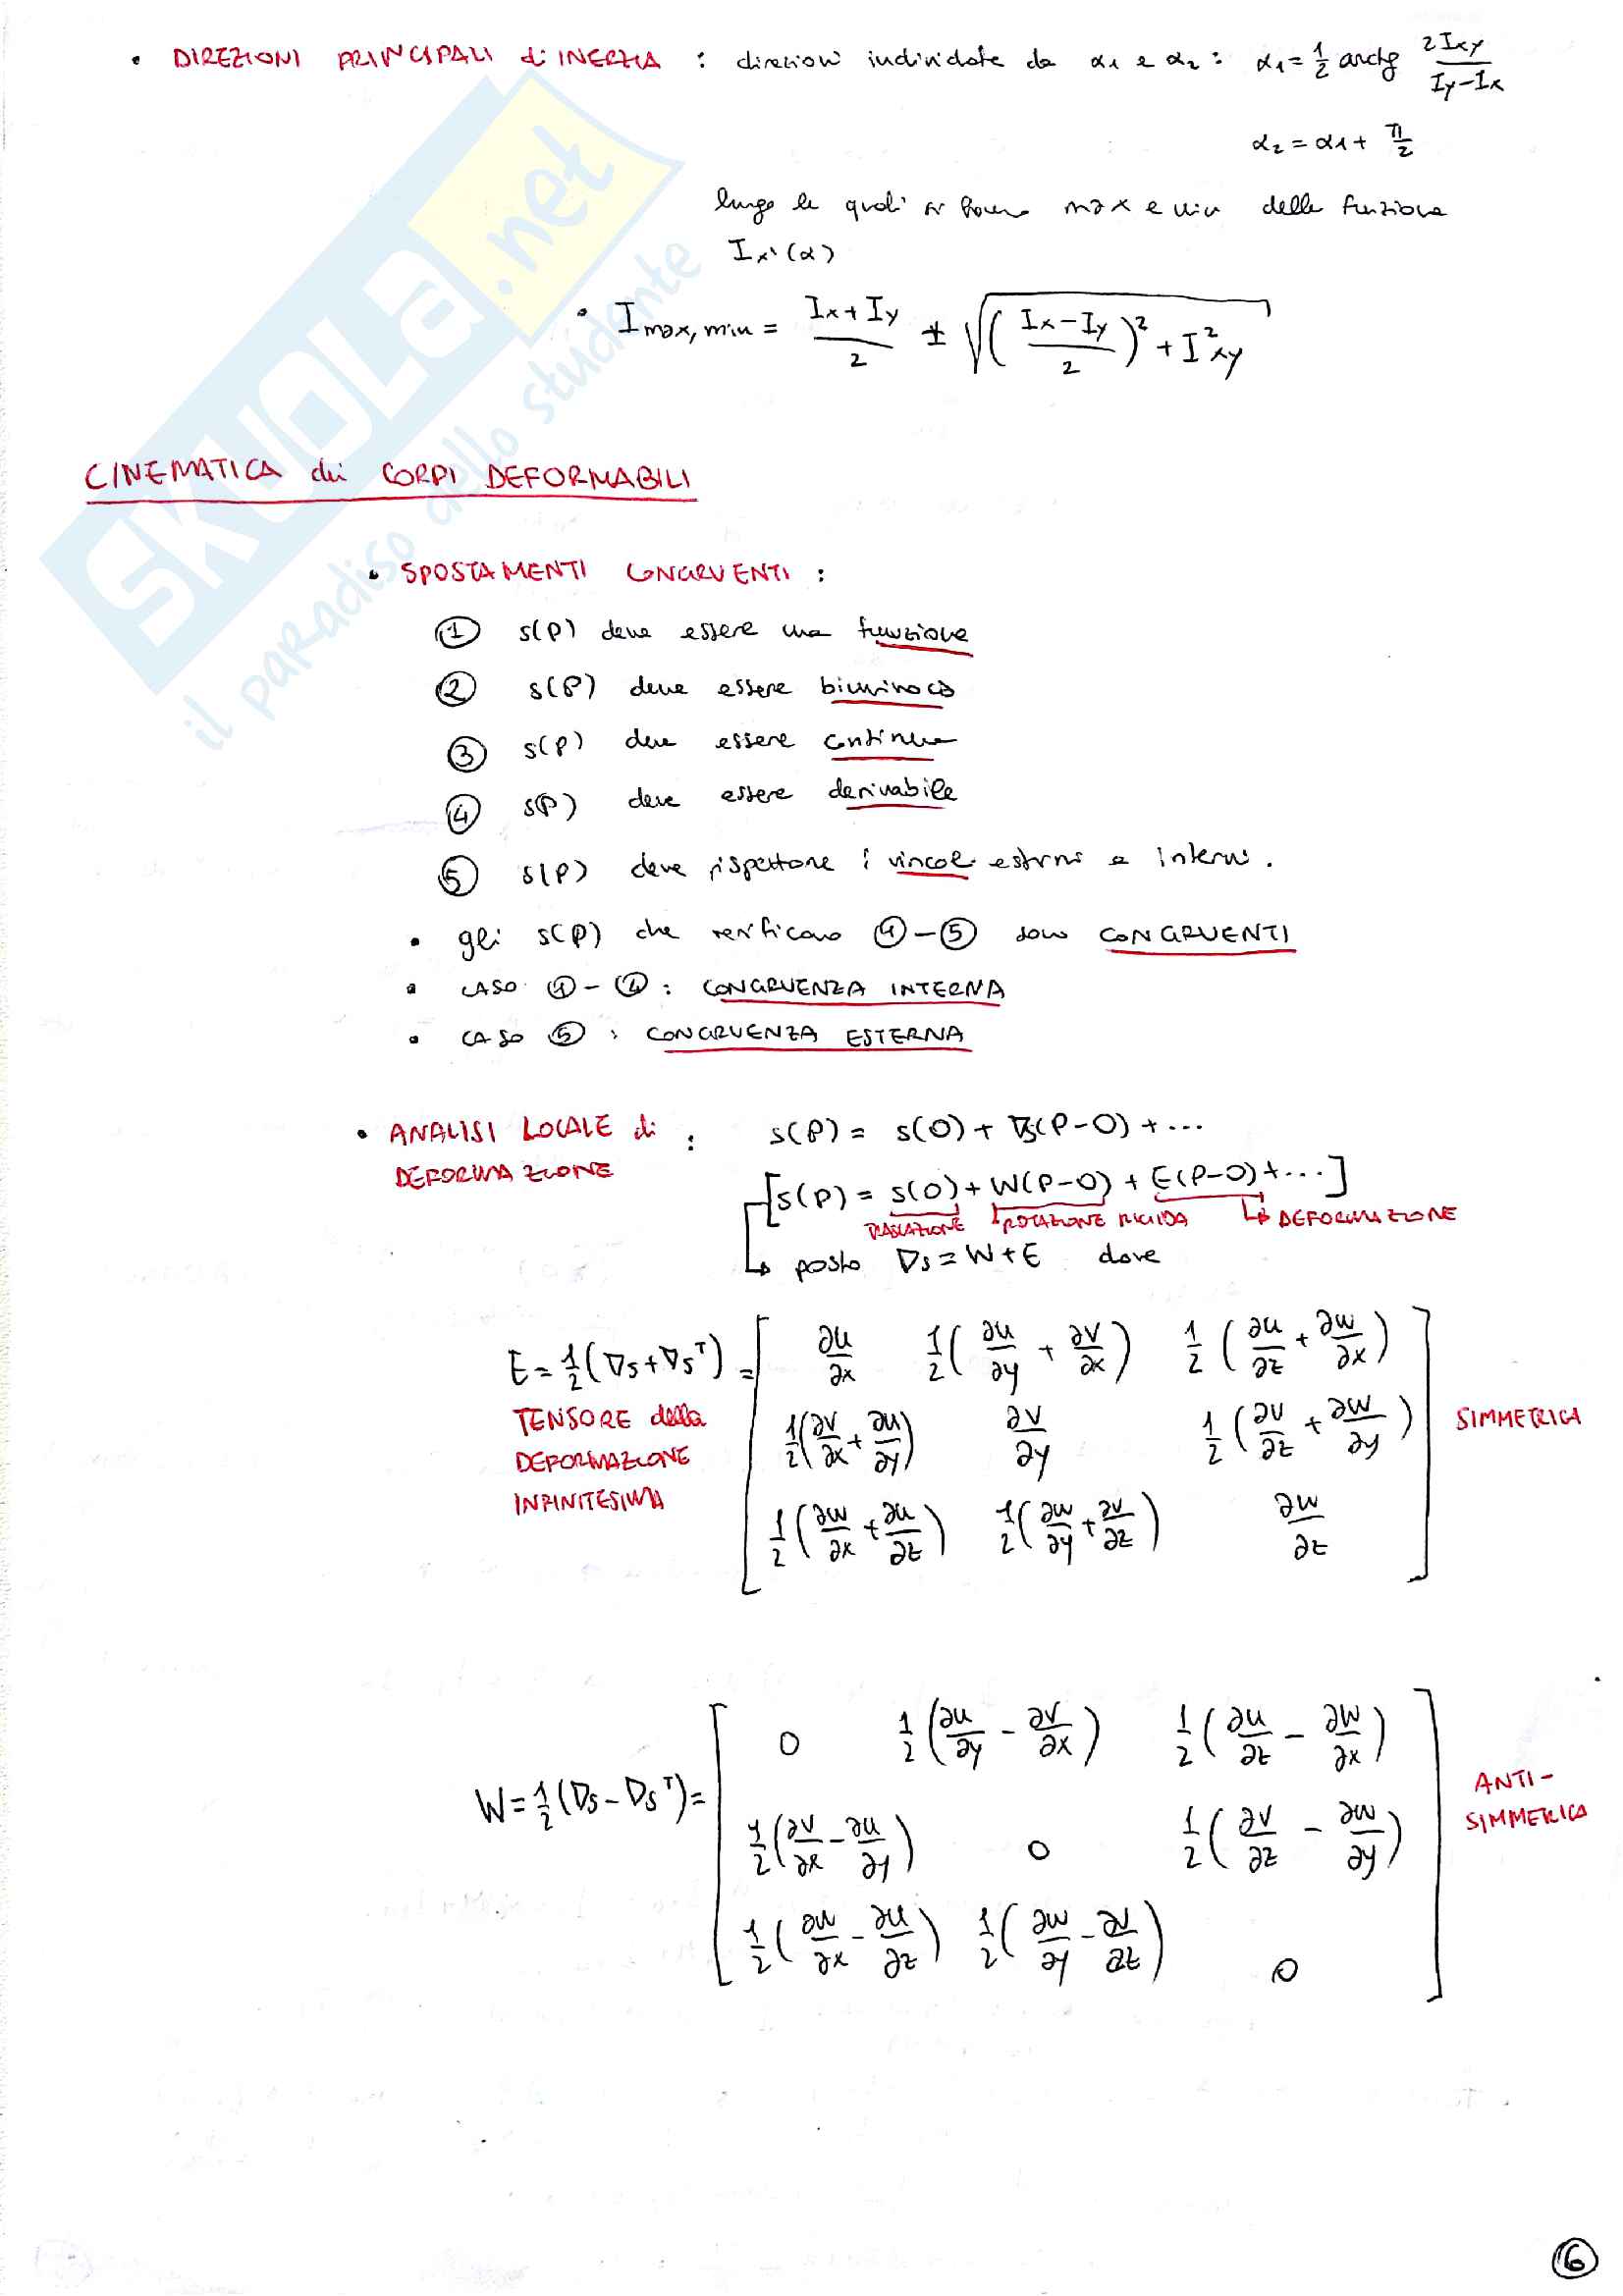 • DIREZIONI PRINCIPALI di INERZIA : direzioni individuate da α1 e α2 : α1 = 1/2 arctg 2Ixy/(Iy-Ix)
α2 = α1 + π/2
lungo le quali si hanno max e min della funzione
Ix'(α)
• Imax,min = (Ix+Iy)/2 ± √((Ix-Iy)/2)² + I²xy
CINEMATICA dei CORPI DEFORMABILI
• SPOSTAMENTI CONGRUENTI :
① s(P) deve essere una funzione
② s(P) deve essere biunivoca
③ s(P) deve essere continua
④ s(P) deve essere derivabile
⑤ s(P) deve rispettare i vincoli esterni e interni.
• gli s(P) che verificano ④-⑤ sono CONGRUENTI
• CASO ①-④ : CONGRUENZA INTERNA
• CASO ⑤ : CONGRUENZA ESTERNA
• ANALISI LOCALE di : s(P) = s(O) + ∇s(P-O) + ...
DEFORMAZIONE
[s(P) = s(O) + W(P-O) + E(P-O) + ...]
TRASLAZIONE ROTAZIONE RIGIDA ↳ DEFORMAZIONE
↳ posto ∇s = W + E dove
E = 1/2 (∇s + ∇sᵀ) = [ ∂u/∂x 1/2(∂u/∂y + ∂v/∂x) 1/2(∂u/∂z + ∂w/∂x)
TENSORE della 1/2(∂v/∂x + ∂u/∂y) ∂v/∂y 1/2(∂v/∂z + ∂w/∂y) SIMMETRICA
DEFORMAZIONE
INFINITESIMA
1/2(∂w/∂x + ∂u/∂z) 1/2(∂w/∂y + ∂v/∂z) ∂w/∂z ]
W = 1/2 (∇s - ∇sᵀ) = [ 0 1/2(∂u/∂y - ∂v/∂x) 1/2(∂u/∂z - ∂w/∂x)
1/2(∂v/∂x - ∂u/∂y) 0 1/2(∂v/∂z - ∂w/∂y)
1/2(∂w/∂x - ∂u/∂z) 1/2(∂w/∂y - ∂v/∂z) 0 ]
ANTI-
SIMMERICA
6
SKUOLA.net
il paradiso dello studente